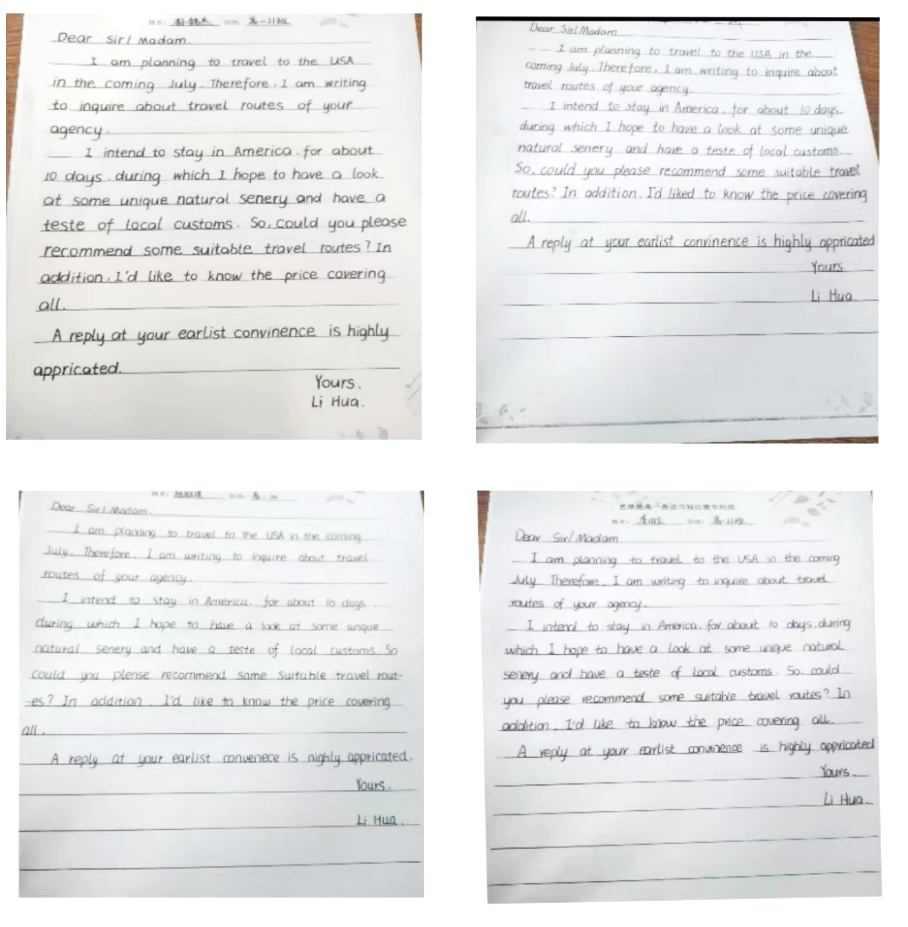 姓名: 班级: 高一21班
Dear Sir/ Madam.
I am planning to travel to the USA
in the coming July. Therefore, I am writing
to inquire about travel routes of your
agency.
I intend to stay in America. for about
10 days. during which I hope to have a look
at some unique natural senery and have a
teste of local customs. So. could you please
recommend some suitable travel routes? In
addition. I'd like to know the price covering
all.
A reply at your earlist convinence is highly
appricated.
Yours.
Li Hua.
Dear Sir/Madam
I am planning to travel to the USA in the
coming July. Therefore, I am writing to inquire about
travel routes of your agency.
I intend to stay in America. for about 10 days.
during which I hope to have a look at some unique
natural senery and have a teste of local customs.
So, could you please recommend some suitable travel
routes? In addition. I'd liked to know the price covering
all.
A reply at your earlist convinence is highly appricated
Yours.
Li Hua.
姓名: 班级: 高一
Dear Sir/ Madam.
I am planning to travel to the USA in the coming
July. Therefore. I am writing to inquire about travel
routes of your agency.
I intend to stay in America. for about 10 days.
during which I hope to have a look at some unque
natural senery and have a teste of local customs. So
could you plense recommend some suitable travel rout-
-es? In addition. I'd like to know the price covering
all.
A reply at your earlist convenece is nighly appricated.
Yours.
Li Hua.
艺体班高一英语书写比赛专用纸
姓名: 班级: 高一21班
Dear Sir/ Madam
I am planning to travel to the USA in the coming
July Therefore. I am writing to inquire about travel
routes of your agency.
I intend to stay in America. for about 10 days. during
which I hope to have a look at some unique natural
senery and have a teste of local customs. So. could
you please recommend some suitable travel routes? In
addition. I'd like to know the price covering all.
A reply at your earlist convinence is highly appricated
Yours.
Li Hua.